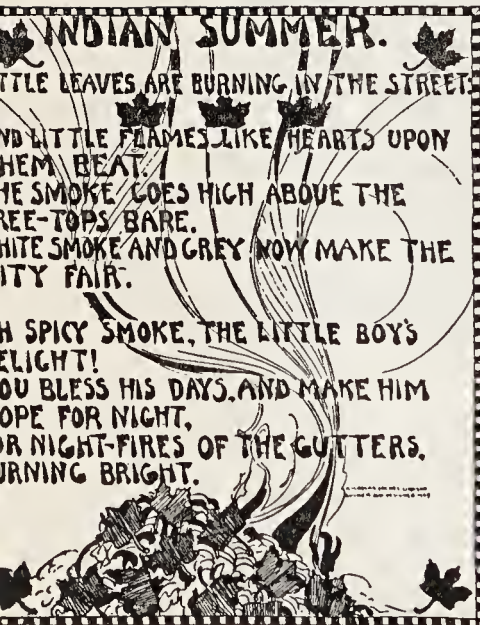 INDIAN SUMMER.
TTLE LEAVES ARE BURNING IN THE STREET:
ND LITTLE FLAMES LIKE HEARTS UPON
HEM BEAT.
HE SMOKE GOES HIGH ABOVE THE
REE-TOPS BARE.
HITE SMOKE AND GREY NOW MAKE THE
ITY FAIR.
H SPICY SMOKE, THE LITTLE BOY'S
ELIGHT!
OU BLESS HIS DAYS, AND MAKE HIM
OPE FOR NIGHT,
OR NIGHT-FIRES OF THE GUTTERS,
URNING BRIGHT.